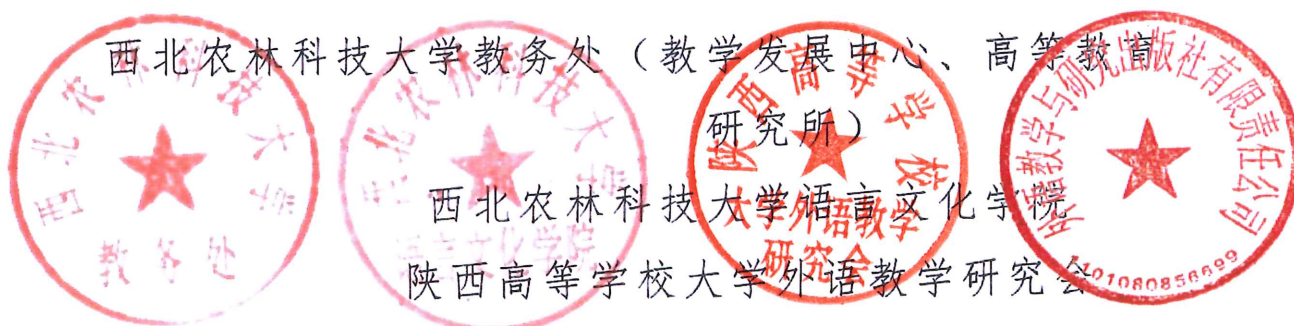 西北农林科技大学教务处（教学发展中心、高等教育
研究所）
西北农林科技大学语言文化学院
陕西高等学校大学外语教学研究会
西北农林科技大学
教务处
西北农林科技大学
语言文化学院
陕西高等学校
大学外语教学
研究会
外语教学与研究出版社有限责任公司
1101080856699